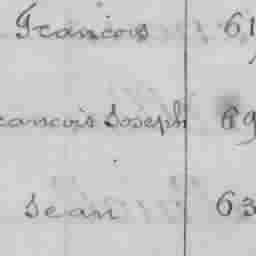 Francois 61
rancois Joseph 69
Jean 63